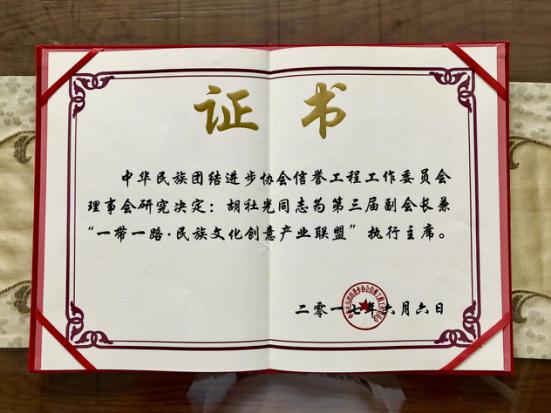 证书
中华民族团结进步协会信誉工程工作委员会
理事会研究决定：胡社光同志为第三届副会长兼
“一带一路·民族文化创意产业联盟”执行主席。
二零一七年六月六日